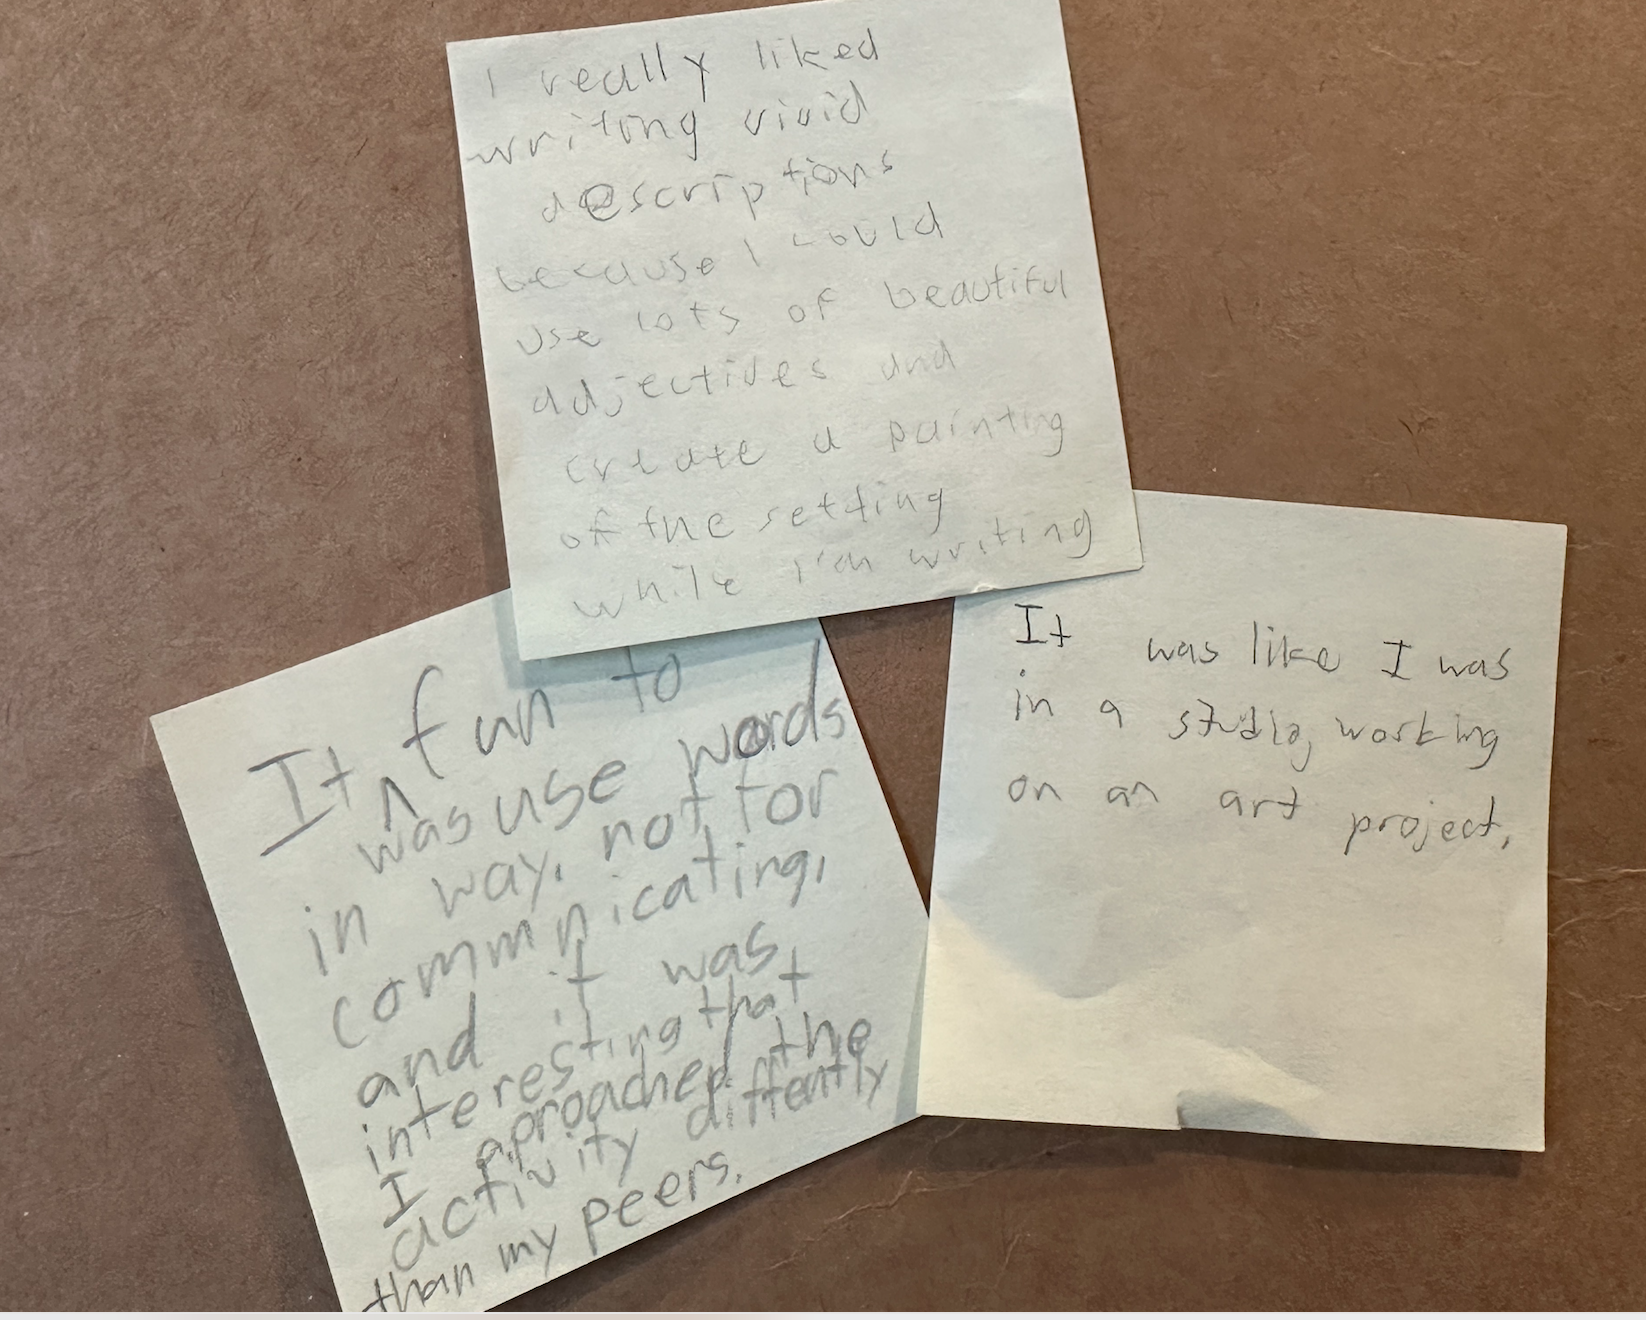 I really liked
writing vivid
descriptions
because I could
use lots of beautiful
adjectives and
create a painting
of the setting
while I'm writing
It ^ fun to
was use words
in way, not for
communicating,
and it was
interesting that
I aproached the
activity diffently
than my peers.
It was like I was
in a studio, working
on an art project.